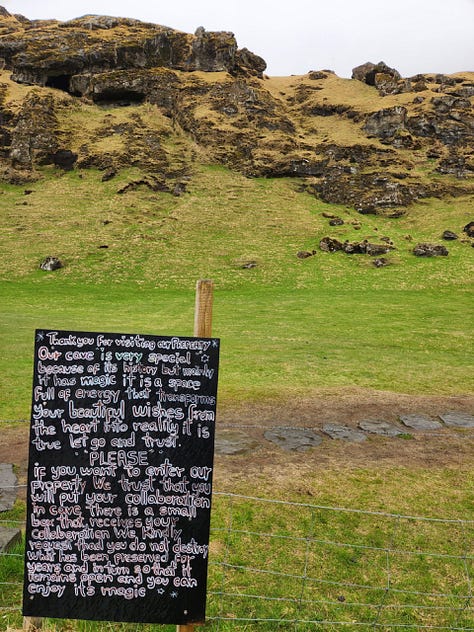 Thank you For visiting our PROPERTY
Our cave is very special
because of its history but mainly
it has magic it is a space
Full of energy that transforms
your beautiful wishes from
the heart into reality it is
true let go and trust.
"PLEASE"
if you want to enter our
property We trust that you
will put your collaboration
in cave there is a small
box that receives your
collaboration We Kindly
request thad you do not destroy
what has been preserved for
years and in turn so that it
remains open and you can
enjoy its magic